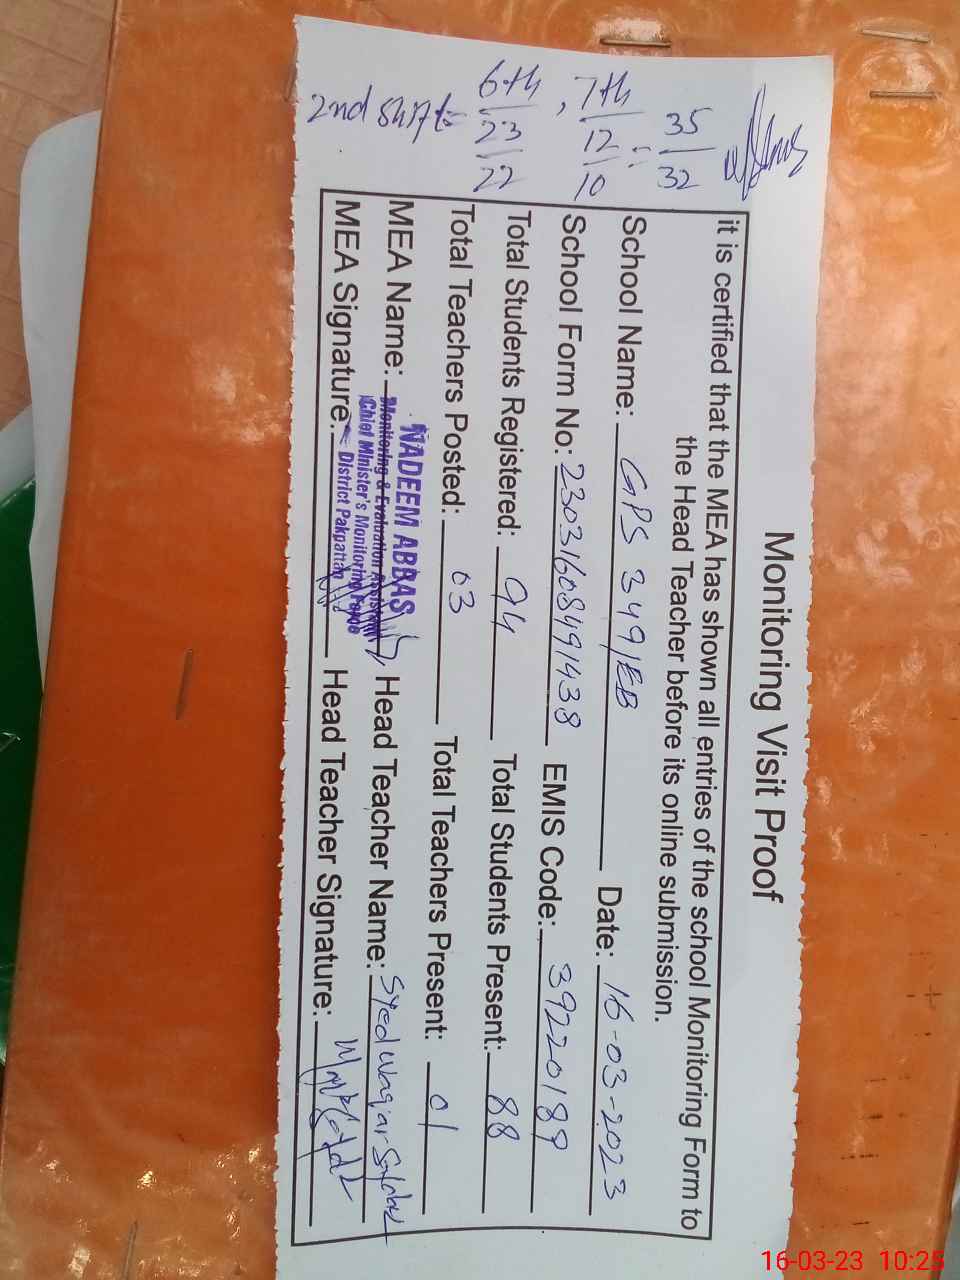 Monitoring Visit Proof
it is certified that the MEA has shown all entries of the school Monitoring Form to
the Head Teacher before its online submission.
School Name: GPS 349/EB Date: 16-03-2023
School Form No: 23031608491438 EMIS Code: 39220189
Total Students Registered: 94 Total Students Present: 88
Total Teachers Posted: 03 Total Teachers Present: 01
MEA Name: Head Teacher Name: Syed Waqar
NADEEM ABBAS
Monitoring & Evaluation Assistant
Chief Minister's Monitoring Force
District Pakpattan
MEA Signature: Head Teacher Signature:
2nd shift = 6th 23/22, 7th 12/10 = 35/32
16-03-23 10:25